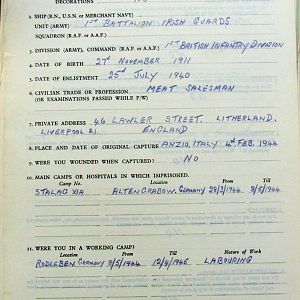 DECORATIONS
2. SHIP (R.N., U.S.N. or MERCHANT NAVY)
UNIT (ARMY) 1ST BATTALION IRISH GUARDS
SQUADRON (R.A.F. or A.A.F.)
3. DIVISION (ARMY), COMMAND (R.A.F. or A.A.F.) 1ST BRITISH INFANTRY DIVISION
4. DATE OF BIRTH 27th NOVEMBER 1911
5. DATE OF ENLISTMENT 25th JULY 1940
6. CIVILIAN TRADE OR PROFESSION MEAT SALESMAN
(OR EXAMINATIONS PASSED WHILE P/W)
7. PRIVATE ADDRESS 46 LAWLER STREET. LITHERLAND.
LIVERPOOL 21. ENGLAND
8. PLACE AND DATE OF ORIGINAL CAPTURE ANZIO, ITALY 4th FEB. 1944
9. WERE YOU WOUNDED WHEN CAPTURED? NO
10. MAIN CAMPS OR HOSPITALS IN WHICH IMPRISONED.
Camp No. Location From Till
STALAG XIA ALTENGRABOW. GERMANY 28/3/1944. 8/5/1944.
11. WERE YOU IN A WORKING CAMP?
Location From Till Nature of Work
RODLEBEN GERMANY 8/5/1944 12/4/1945 LABOURING